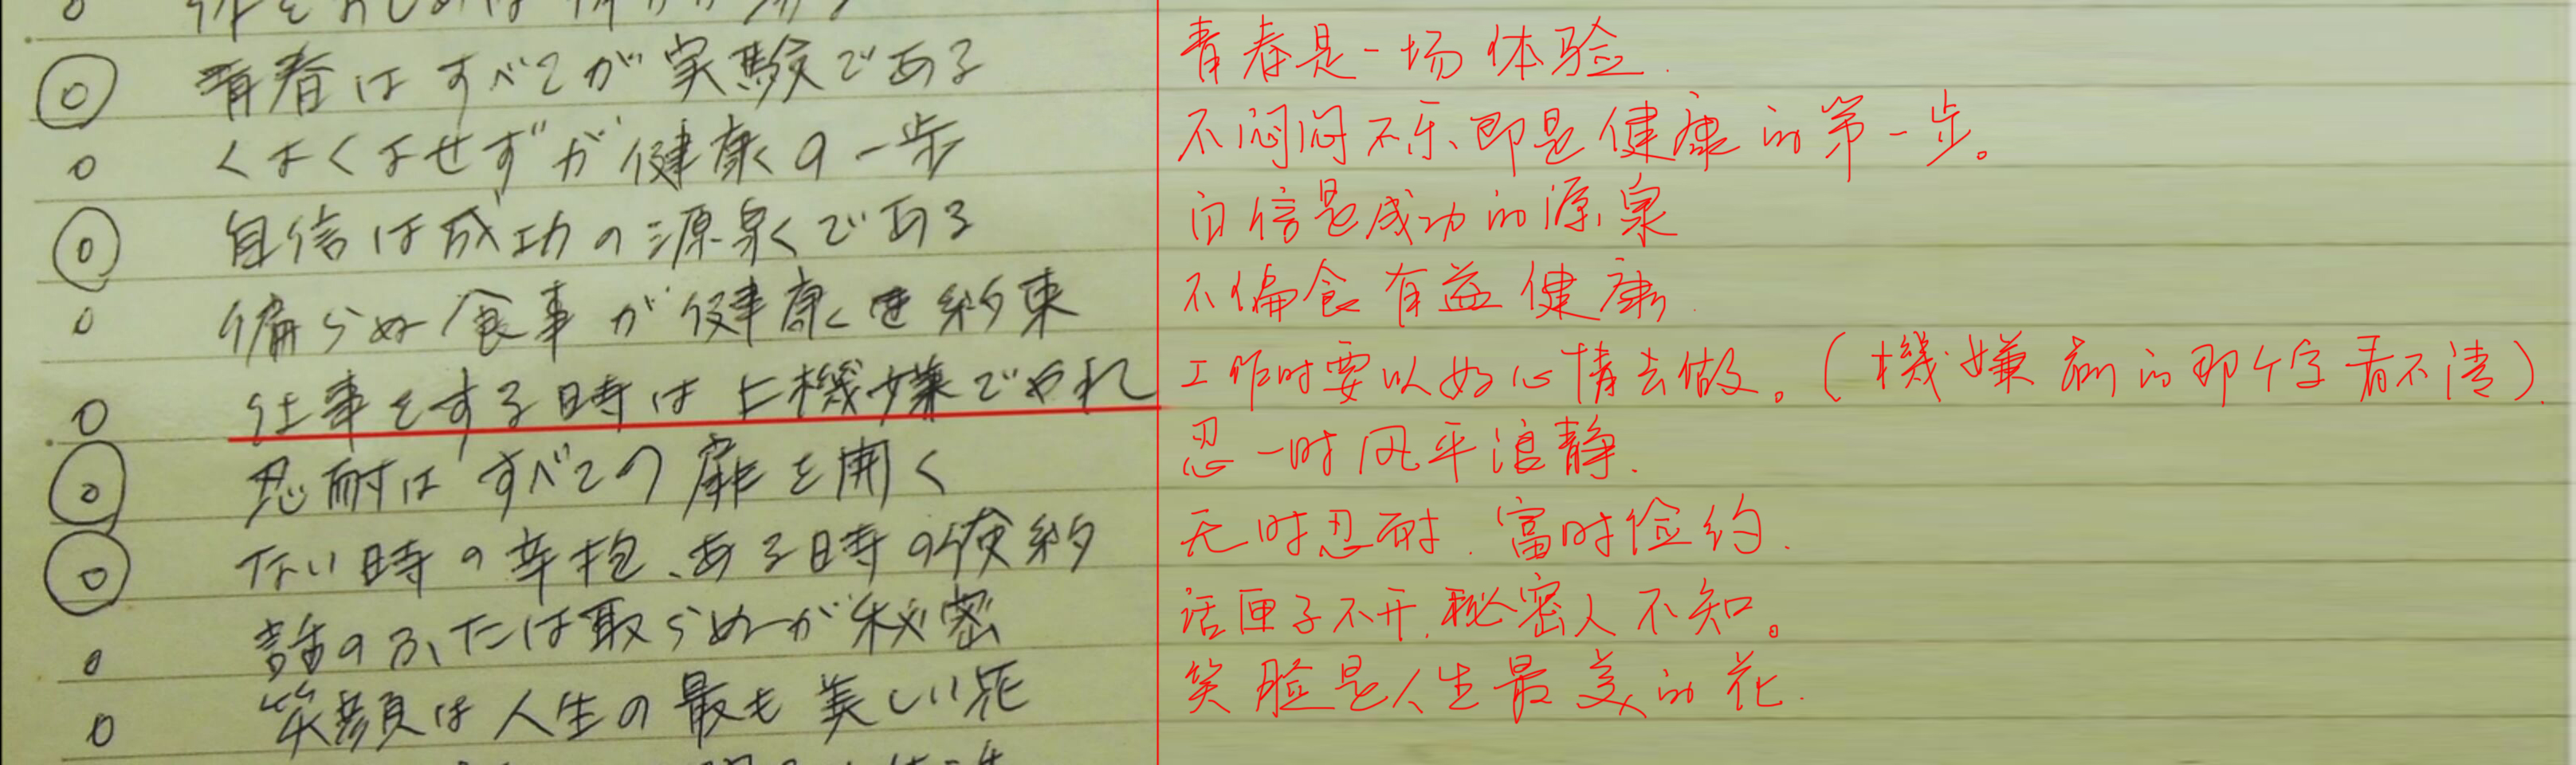 青春はすべてが実験である
くよくよせずが健康の一歩
自信は成功の源泉である
偏らぬ食事が健康を約束
仕事をする時は上機嫌でやれ
忍耐はすべての扉を開く
ない時の辛抱、ある時の倹約
話のふたは取らぬが秘密
笑顔は人生の最も美しい花
青春是一场体验.
不闷闷不乐、即是健康的第一步。
自信是成功的源泉
不偏食有益健康.
工作时要以好心情去做。(機嫌前的那个字看不清).
忍一时风平浪静.
无时忍耐.富时俭约.
话匣子不开.秘密人不知。
笑脸是人生最美的花.